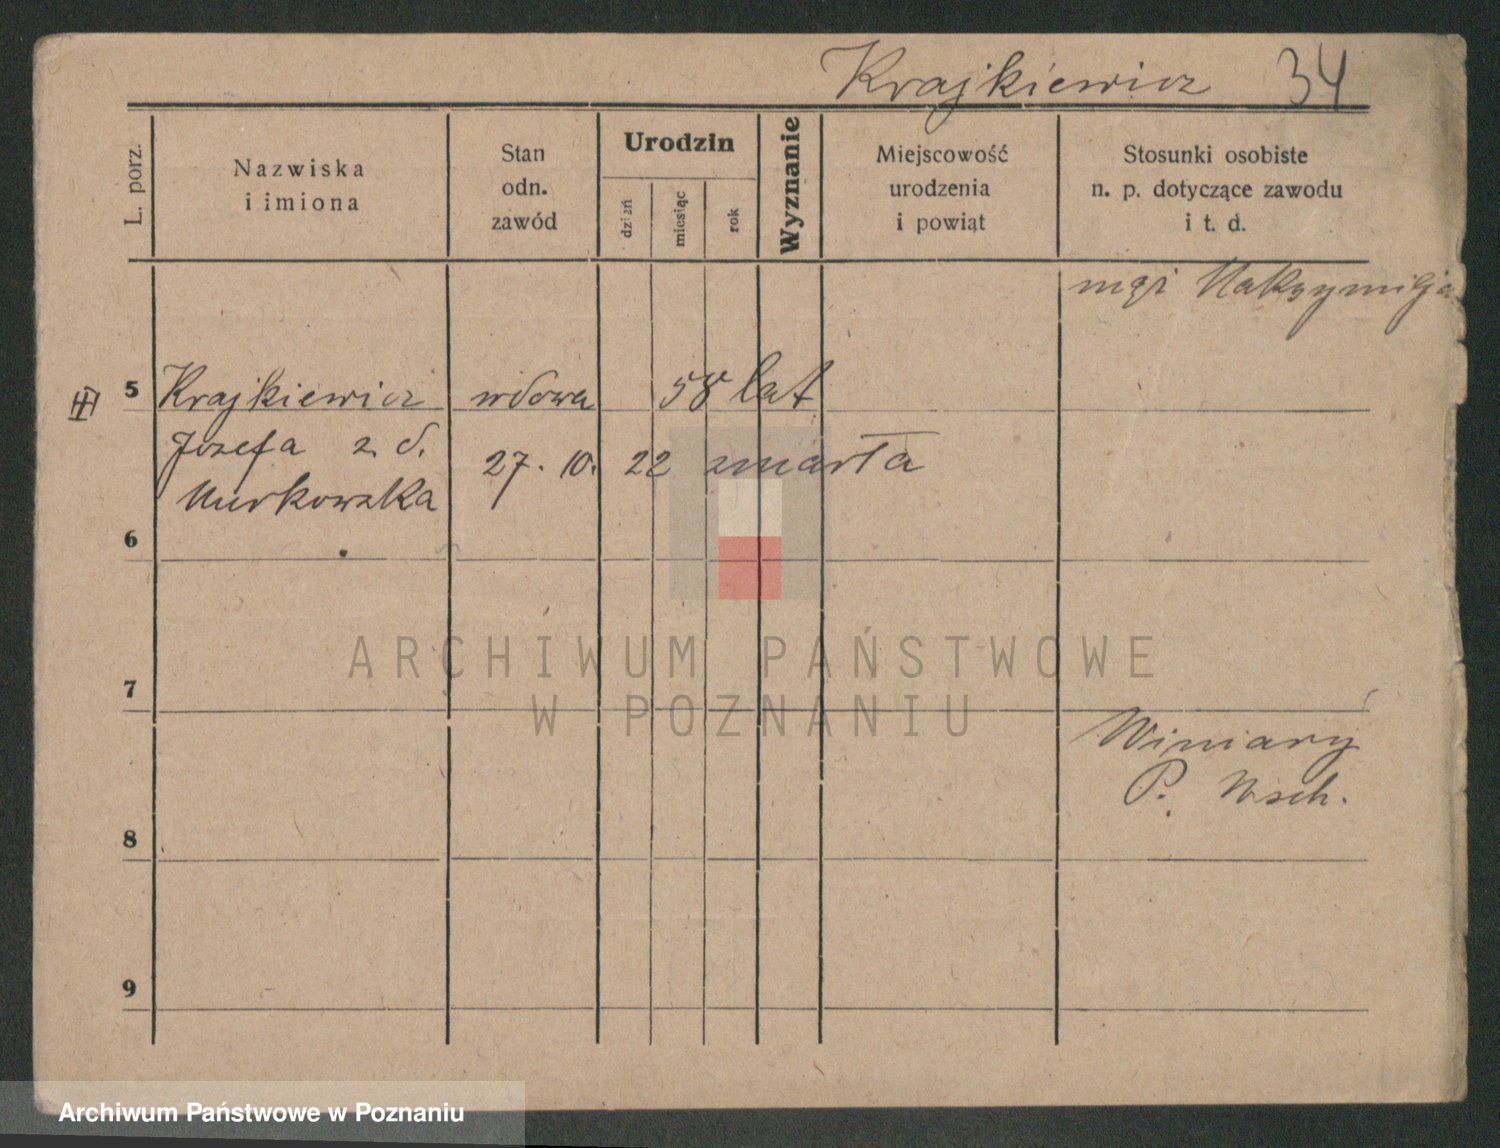 Krajkiewicz 34
L. porz.
Nazwiska
i imiona
Stan
odn.
zawód
Urodzin
dzień
miesiąc
rok
Wyznanie
Miejscowość
urodzenia
i powiąt
Stosunki osobiste
n. p. dotyczące zawodu
i t. d.
mąż Maksymilja
5 Krajkiewicz wdowa 58 lat
Józefa z d. 27. 10. 22 zmarła
Murkowska
6
7
ARCHIWUM PAŃSTWOWE
W POZNANIU
Winiary
P. Wsch.
8
9
Archiwum Państwowe w Poznaniu